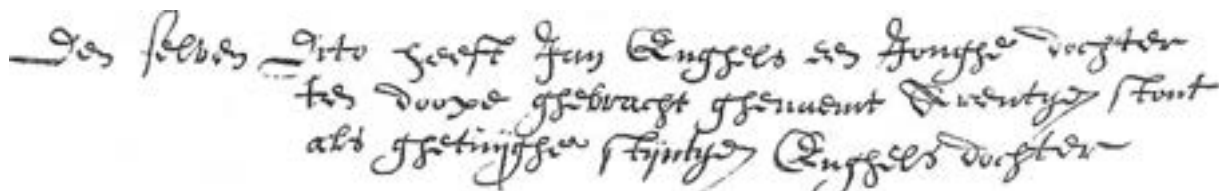 Den selven Dito heeft Jan Enghels een Jonghe dochter
ten doope ghebracht ghenaemt Trentyen stont
als ghetuijghe stijntyen Enghels dochter